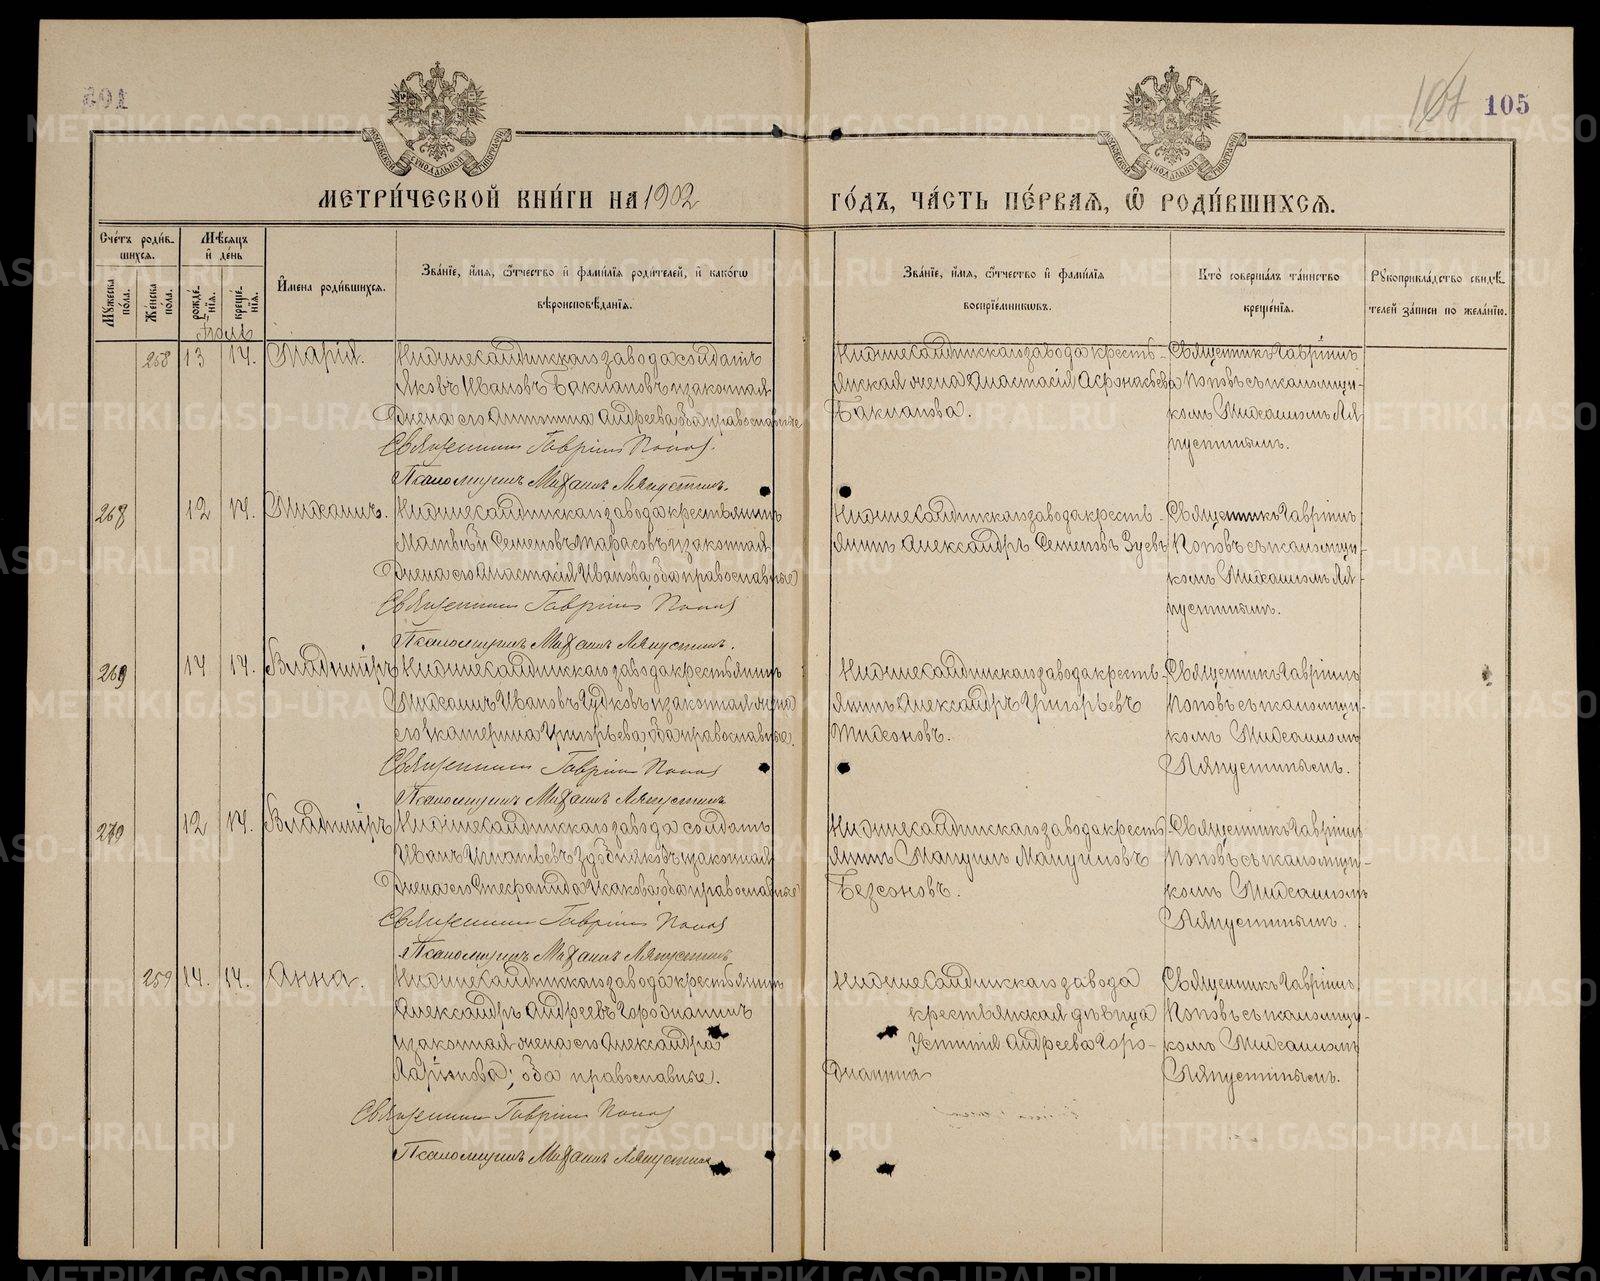 105
МЕТРИ́ЧЕСКОЙ КНИ́ГИ НА 1902 ГО́ДЪ, ЧА́СТЬ ПЕ́РВАѦ, Ѡ҆ РОДИ́ВШИХСѦ.
Сче́тъ роди́в-
шихсѧ.
Мꙋ́жеска по́ла.
Же́нска по́ла.
Мѣ́сѧцъ
и҆ де́нь
рожде́-
нїѧ.
креще́-
нїѧ.
И҆мена̀ роди́вшихсѧ.
Зва́нїе, и҆́мѧ, ѻ҆́тчество и҆ фами́лїѧ роди́телей, и҆ како́гѡ
вѣроисповѣ́данїѧ.
Зва́нїе, и҆́мѧ, ѻ҆́тчество и҆ фами́лїѧ
воспрїе́мникѡвъ.
Кто̀ соверша́лъ та́инство
креще́нїѧ.
Рꙋкоприкла́дство свидѣ́-
телей за́писи по жела́нїю.
258 13 14. Марія.
Нижнесалдинскаго завода солдатъ
Яковъ Ивановъ Баклановъ и законная
жена его Антонина Андреева, оба православные
Священникъ Гавріилъ Поповъ.
Псаломщикъ Михаилъ Ляпустинъ.
Нижнесалдинскаго завода кресть-
янская жена Анастасія Афонасьева
Бакланова.
Священникъ Гавріилъ
Поповъ съ псаломщи-
комъ Михаиломъ Ля-
пустинымъ.
268 12 14. Михаилъ.
Нижнесалдинскаго завода крестьянинъ
Матвѣй Семеновъ Тарасовъ и законная
жена его Анастасія Иванова, оба православные
Священникъ Гавріилъ Поповъ
Псаломщикъ Михаилъ Ляпустинъ.
Нижнесалдинскаго завода кресть-
янинъ Александръ Семеновъ Зуевъ
Священникъ Гавріилъ
Поповъ съ псаломщи-
комъ Михаиломъ Ля-
пустинымъ.
269 14 14. Владиміръ
Нижнесалдинскаго завода крестьянинъ
Михаилъ Ивановъ Гудковъ и законная жена
его Екатерина Григорьева, оба православные.
Священникъ Гавріилъ Поповъ
Псаломщикъ Михаилъ Ляпустинъ
Нижнесалдинскаго завода кресть-
янинъ Александръ Григорьевъ
Тихоновъ.
Священникъ Гавріилъ
Поповъ съ псаломщи-
комъ Михаиломъ
Ляпустинымъ.
270 12 14. Владиміръ
Нижнесалдинскаго завода солдатъ
Иванъ Игнатьевъ и законная
жена его Стефанида оба православные
Священникъ Гавріилъ Поповъ
Псаломщикъ Михаилъ Ляпустинъ
Нижнесалдинскаго завода кресть-
янинъ Мануилъ Мануиловъ
Безсоновъ.
Священникъ Гавріилъ
Поповъ съ псаломщи-
комъ Михаиломъ
Ляпустинымъ.
259 14. 14. Анна.
Нижнесалдинскаго завода крестьянинъ
Александръ Андреевъ
законная жена его Александра
Ларіонова; оба православные.
Священникъ Гавріилъ Поповъ
Псаломщикъ Михаилъ Ляпустинъ
Нижнесалдинскаго завода
крестьянская дѣвица
Устинія Андреева
Священникъ Гавріилъ
Поповъ съ псаломщи-
комъ Михаиломъ
Ляпустинымъ.
METRIKI.GASO-URAL.RU